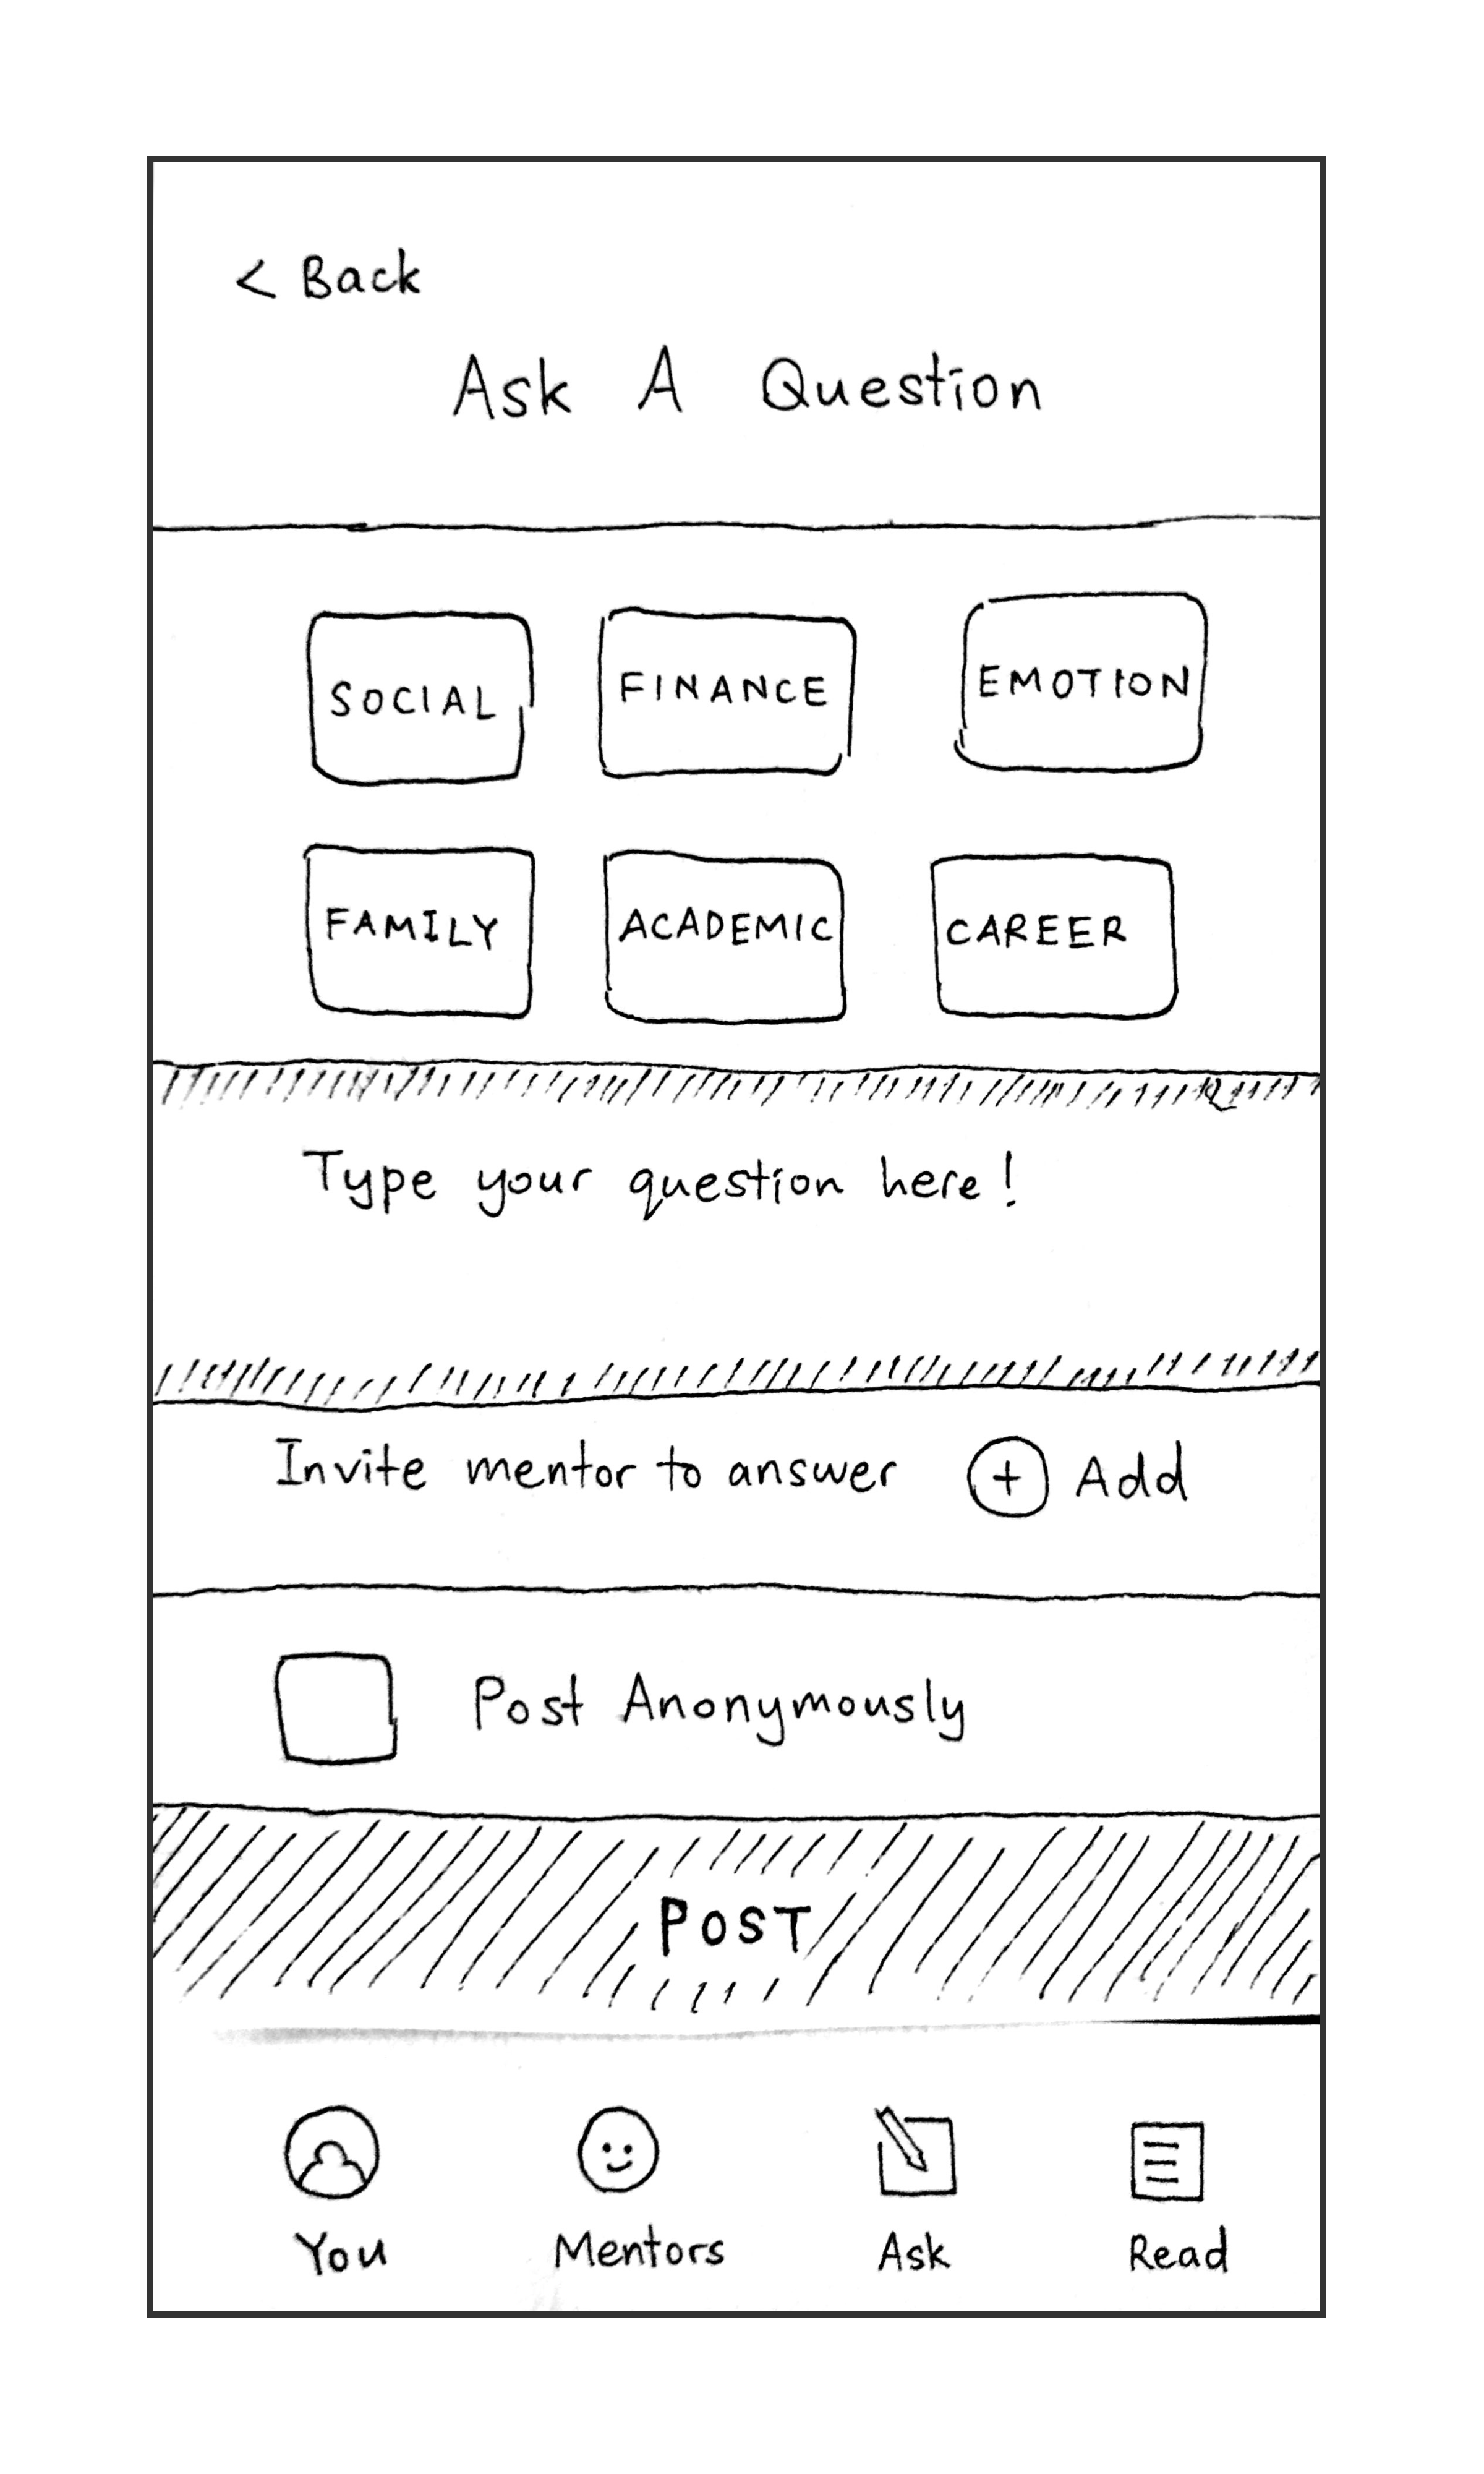 < Back
Ask A Question
SOCIAL FINANCE EMOTION
FAMILY ACADEMIC CAREER
Type your question here!
Invite mentor to answer + Add
Post Anonymously
POST
You Mentors Ask Read